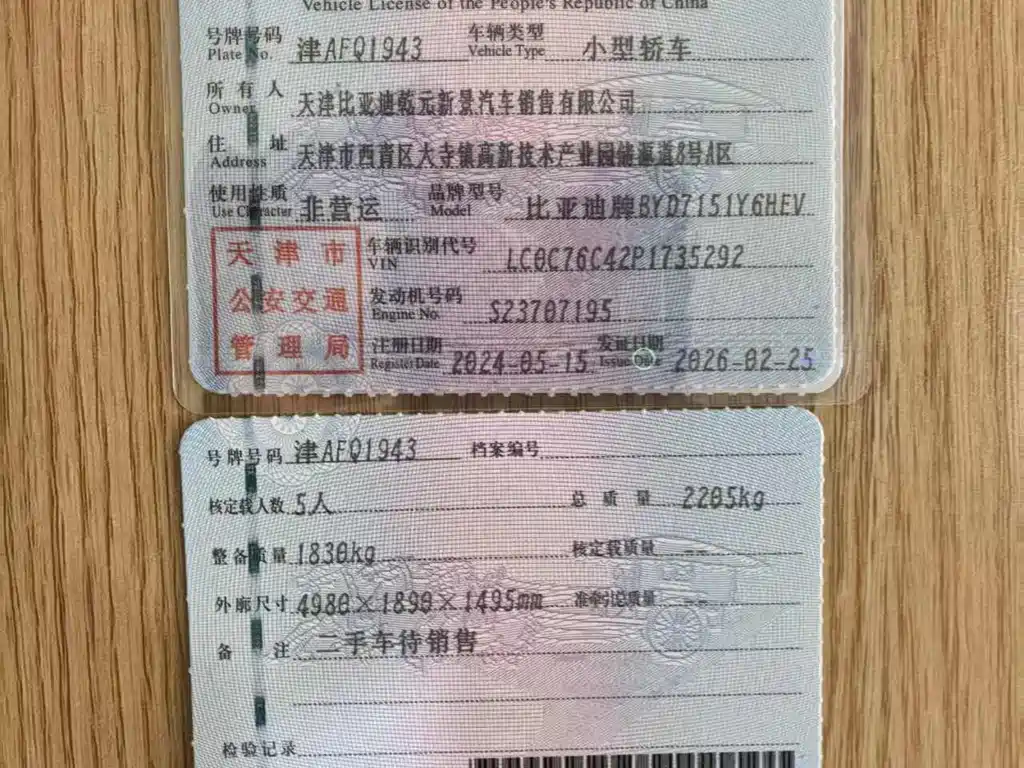 Vehicle License of the People's Republic of China
号牌号码 Plate No. 津AFQ1943 车辆类型 Vehicle Type 小型轿车
所有人 Owner 天津比亚迪乾元新景汽车销售有限公司
住址 Address 天津市西青区大寺镇高新技术产业园储源道8号A区
使用性质 Use Character 非营运 品牌型号 Model 比亚迪牌BYD7151Y6HEV
天津市
公安交通
管理局
车辆识别代号 VIN LC0C76C42P1735292
发动机号码 Engine No. S23707195
注册日期 Register Date 2024-05-15 发证日期 Issue Date 2026-02-25
号牌号码 津AFQ1943 档案编号
核定载人数 5人 总质量 2205kg
整备质量 1830kg 核定载质量 --
外廓尺寸 4980×1890×1495mm 准牵引总质量 --
备注 二手车待销售
检验记录